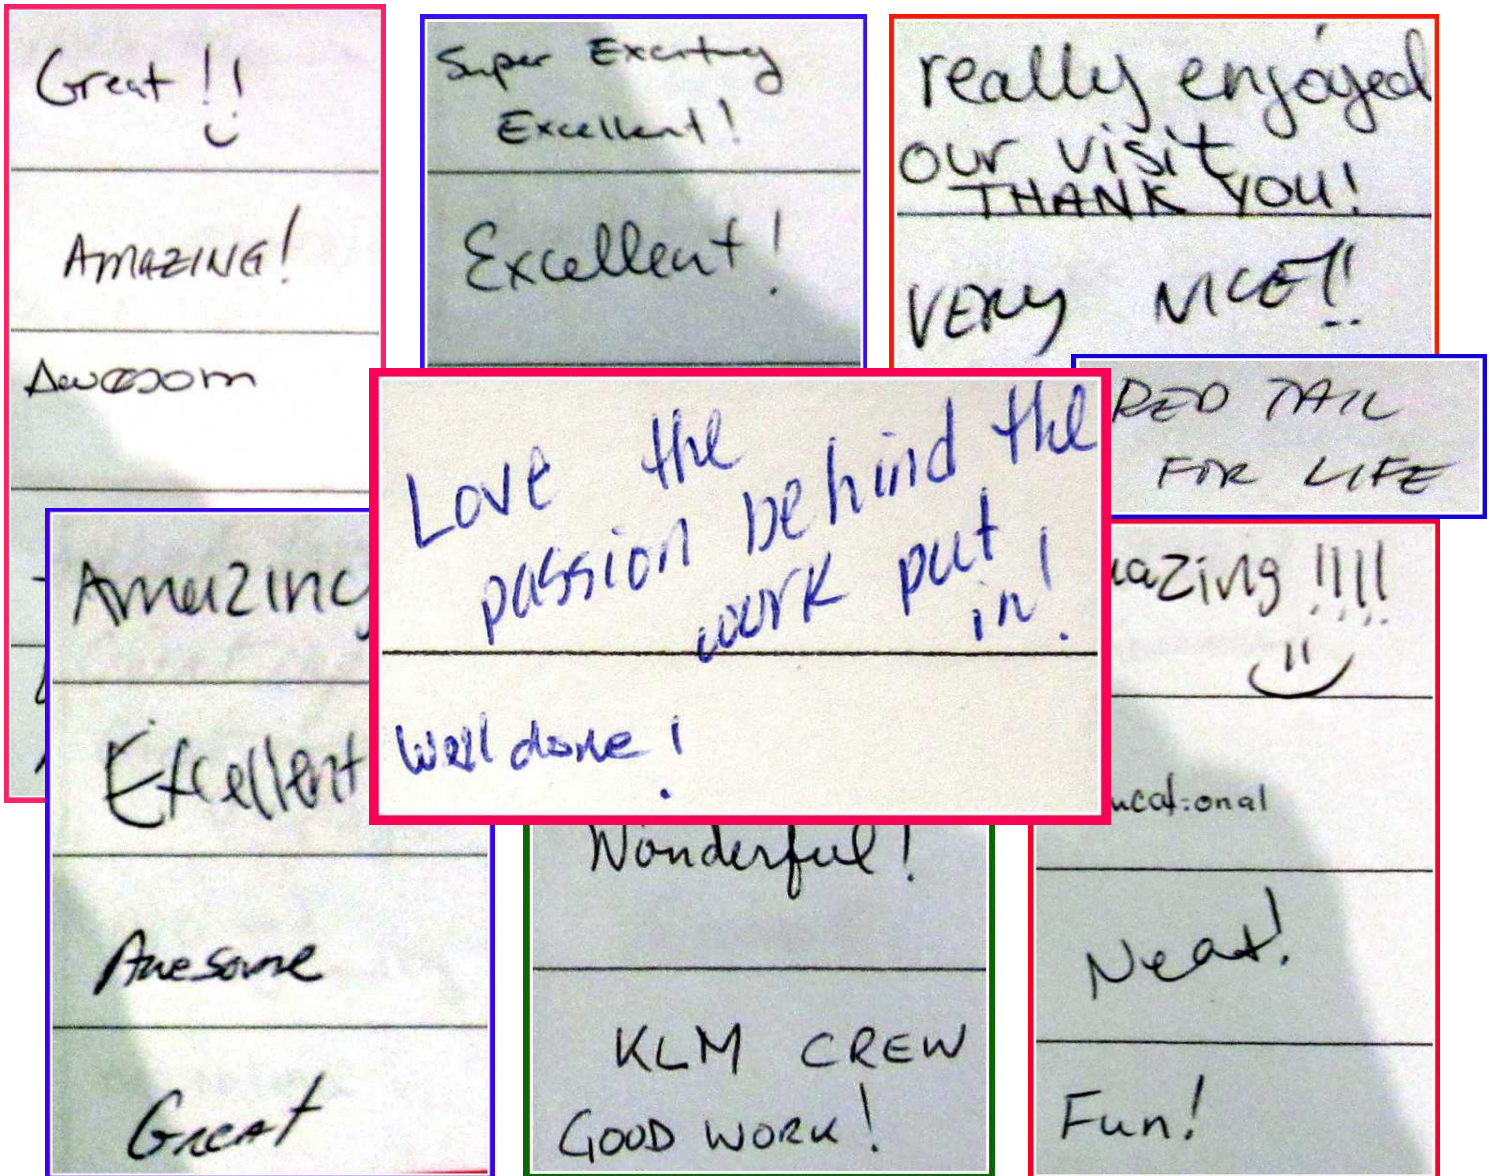 Great !!
AMAZING!
Awesom
Super Exciting
Excellent!
Excellent!
really enjoyed
our visit
THANK YOU!
VERY NICE!!
RED TAIL
FOR LIFE
Love the
passion behind the
work put
in!
Well done!
Amazing
Excellent
Awesome
Great
Wonderful!
KLM CREW
GOOD WORK!
azing !!!!
ucational
Neat!
Fun!